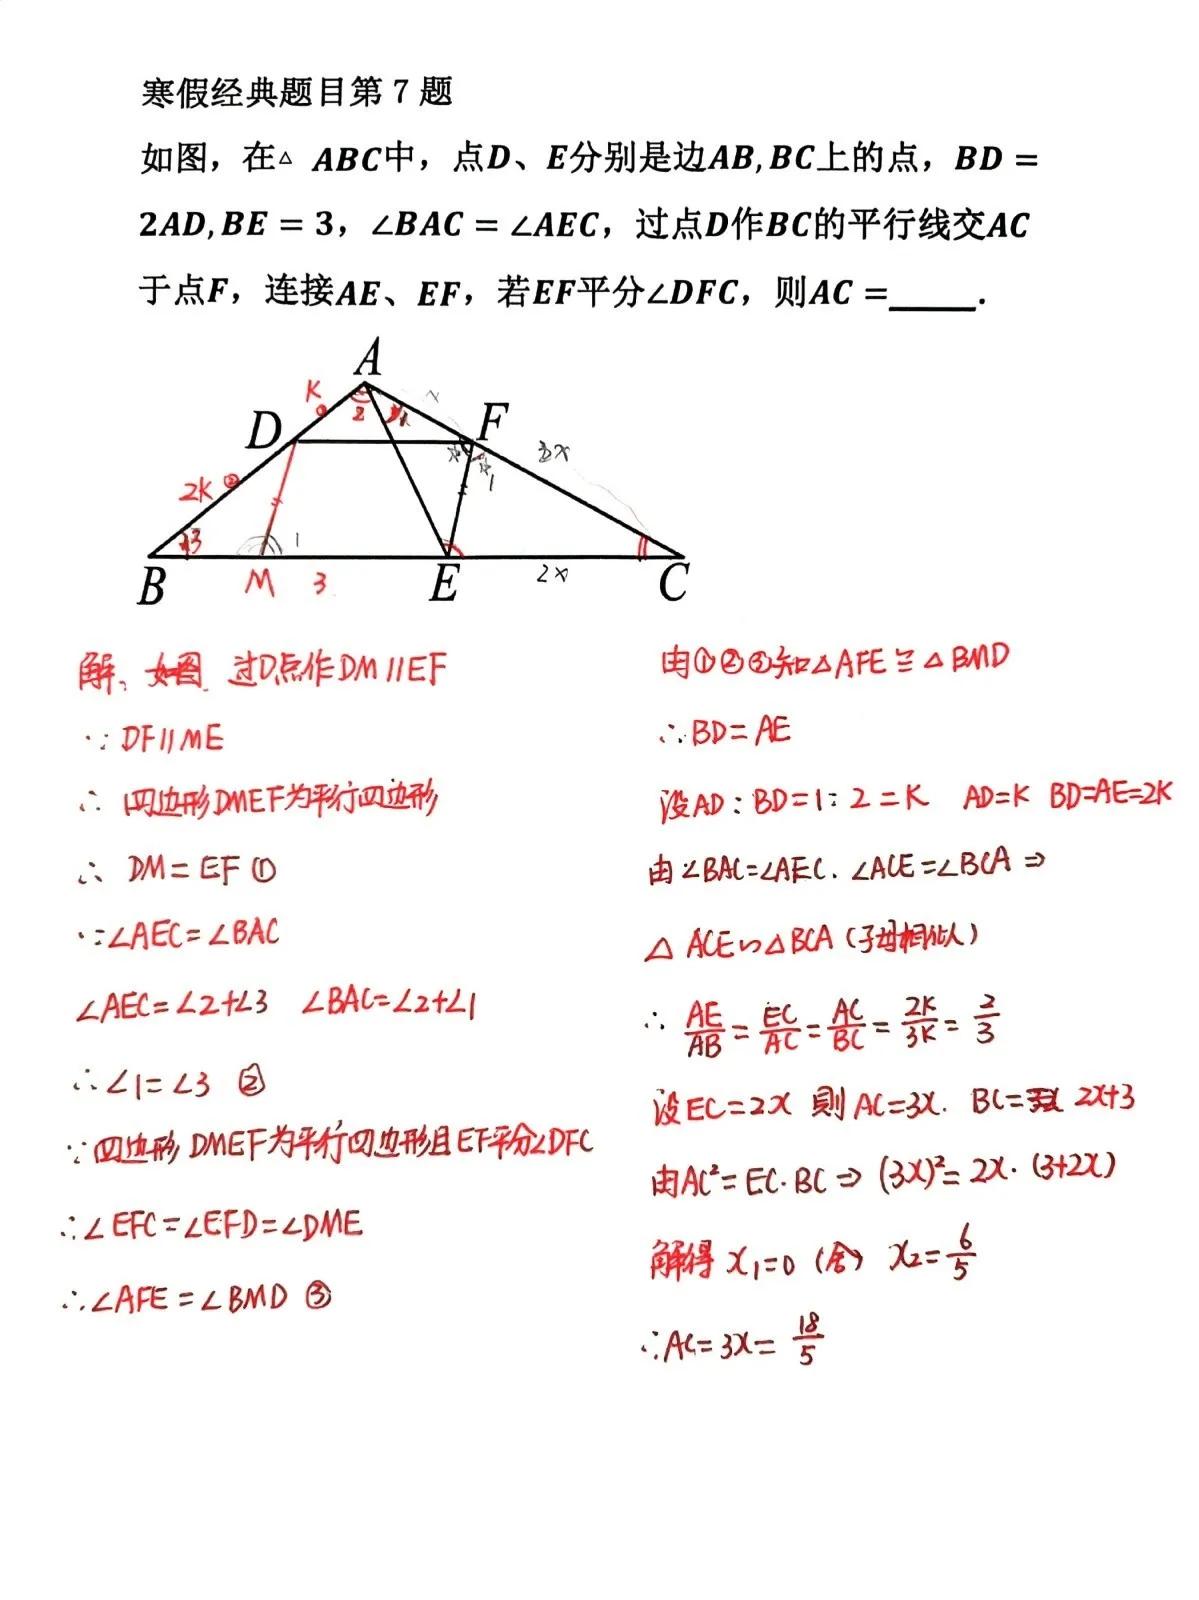 寒假经典题目第 7 题
如图，在△ ABC中，点D、E分别是边AB, BC上的点，BD =
2AD, BE = 3，∠BAC = ∠AEC，过点D作BC的平行线交AC
于点F，连接AE、EF，若EF平分∠DFC，则AC =_____.
A
K
2
D
F
2K ②
3x
1
B
3
1
M
3
E
2x
C
解、如图 过D点作DM∥EF
∵ DF∥ME
∴ 四边形DMEF为平行四边形
∴ DM=EF ①
∵∠AEC=∠BAC
∠AEC=∠2+∠3 ∠BAC=∠2+∠1
∴∠1=∠3 ②
∵四边形DMEF为平行四边形且EF平分∠DFC
∴∠EFC=∠EFD=∠DME
∴∠AFE=∠BMD ③
由①②③知△AFE≌△BMD
∴BD=AE
设AD:BD=1:2=K AD=K BD=AE=2K
由∠BAC=∠AEC. ∠ACE=∠BCA ⇒
△ ACE∽△BCA (子母相似)
∴ AE/AB = EC/AC = AC/BC = 2K/3K = 2/3
设EC=2x 则AC=3x. BC= 2x+3
由AC²=EC·BC ⇒ (3x)²=2x·(3+2x)
解得 x₁=0 (舍) x₂=6/5
∴AC=3x= 18/5